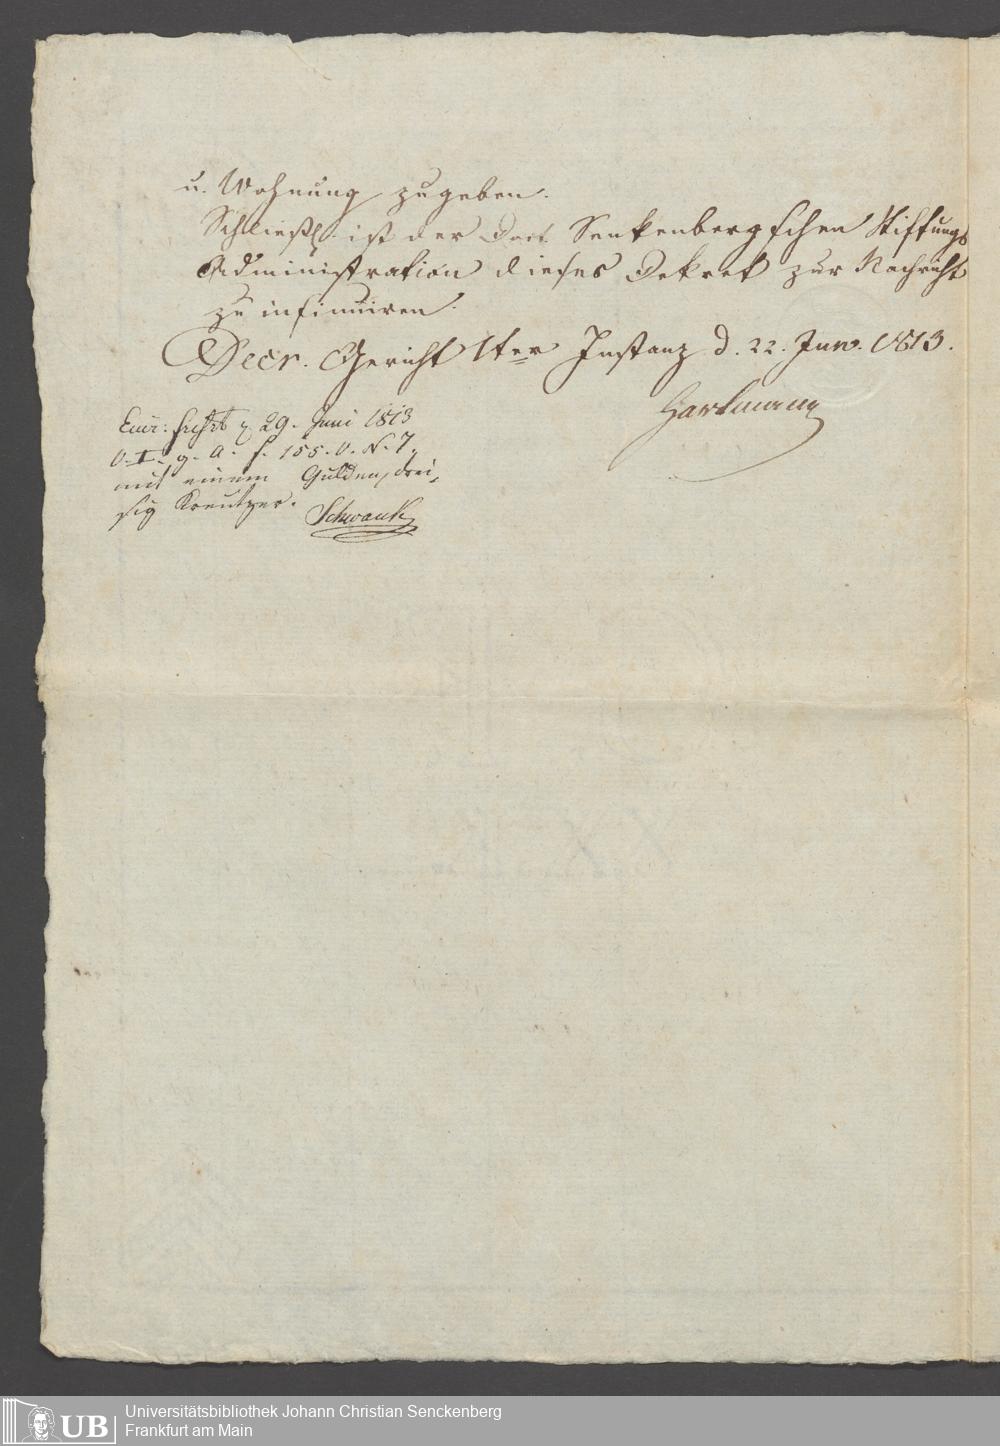 u. Wohnung zugeben.
Schließl. ist der Doct. Senkenbergschen Stiftungs
Administration dieses Dekret zur Nachricht
zu insinuiren.
Decr. Gericht 1ter Instanz d. 22. Jun. 1813.
Hartmann
29. Juni 1813
f. 155. v. N. 7.
mit einem Gulden, drei
sig Kreutzer.
Schwank
UB
Universitätsbibliothek Johann Christian Senckenberg
Frankfurt am Main